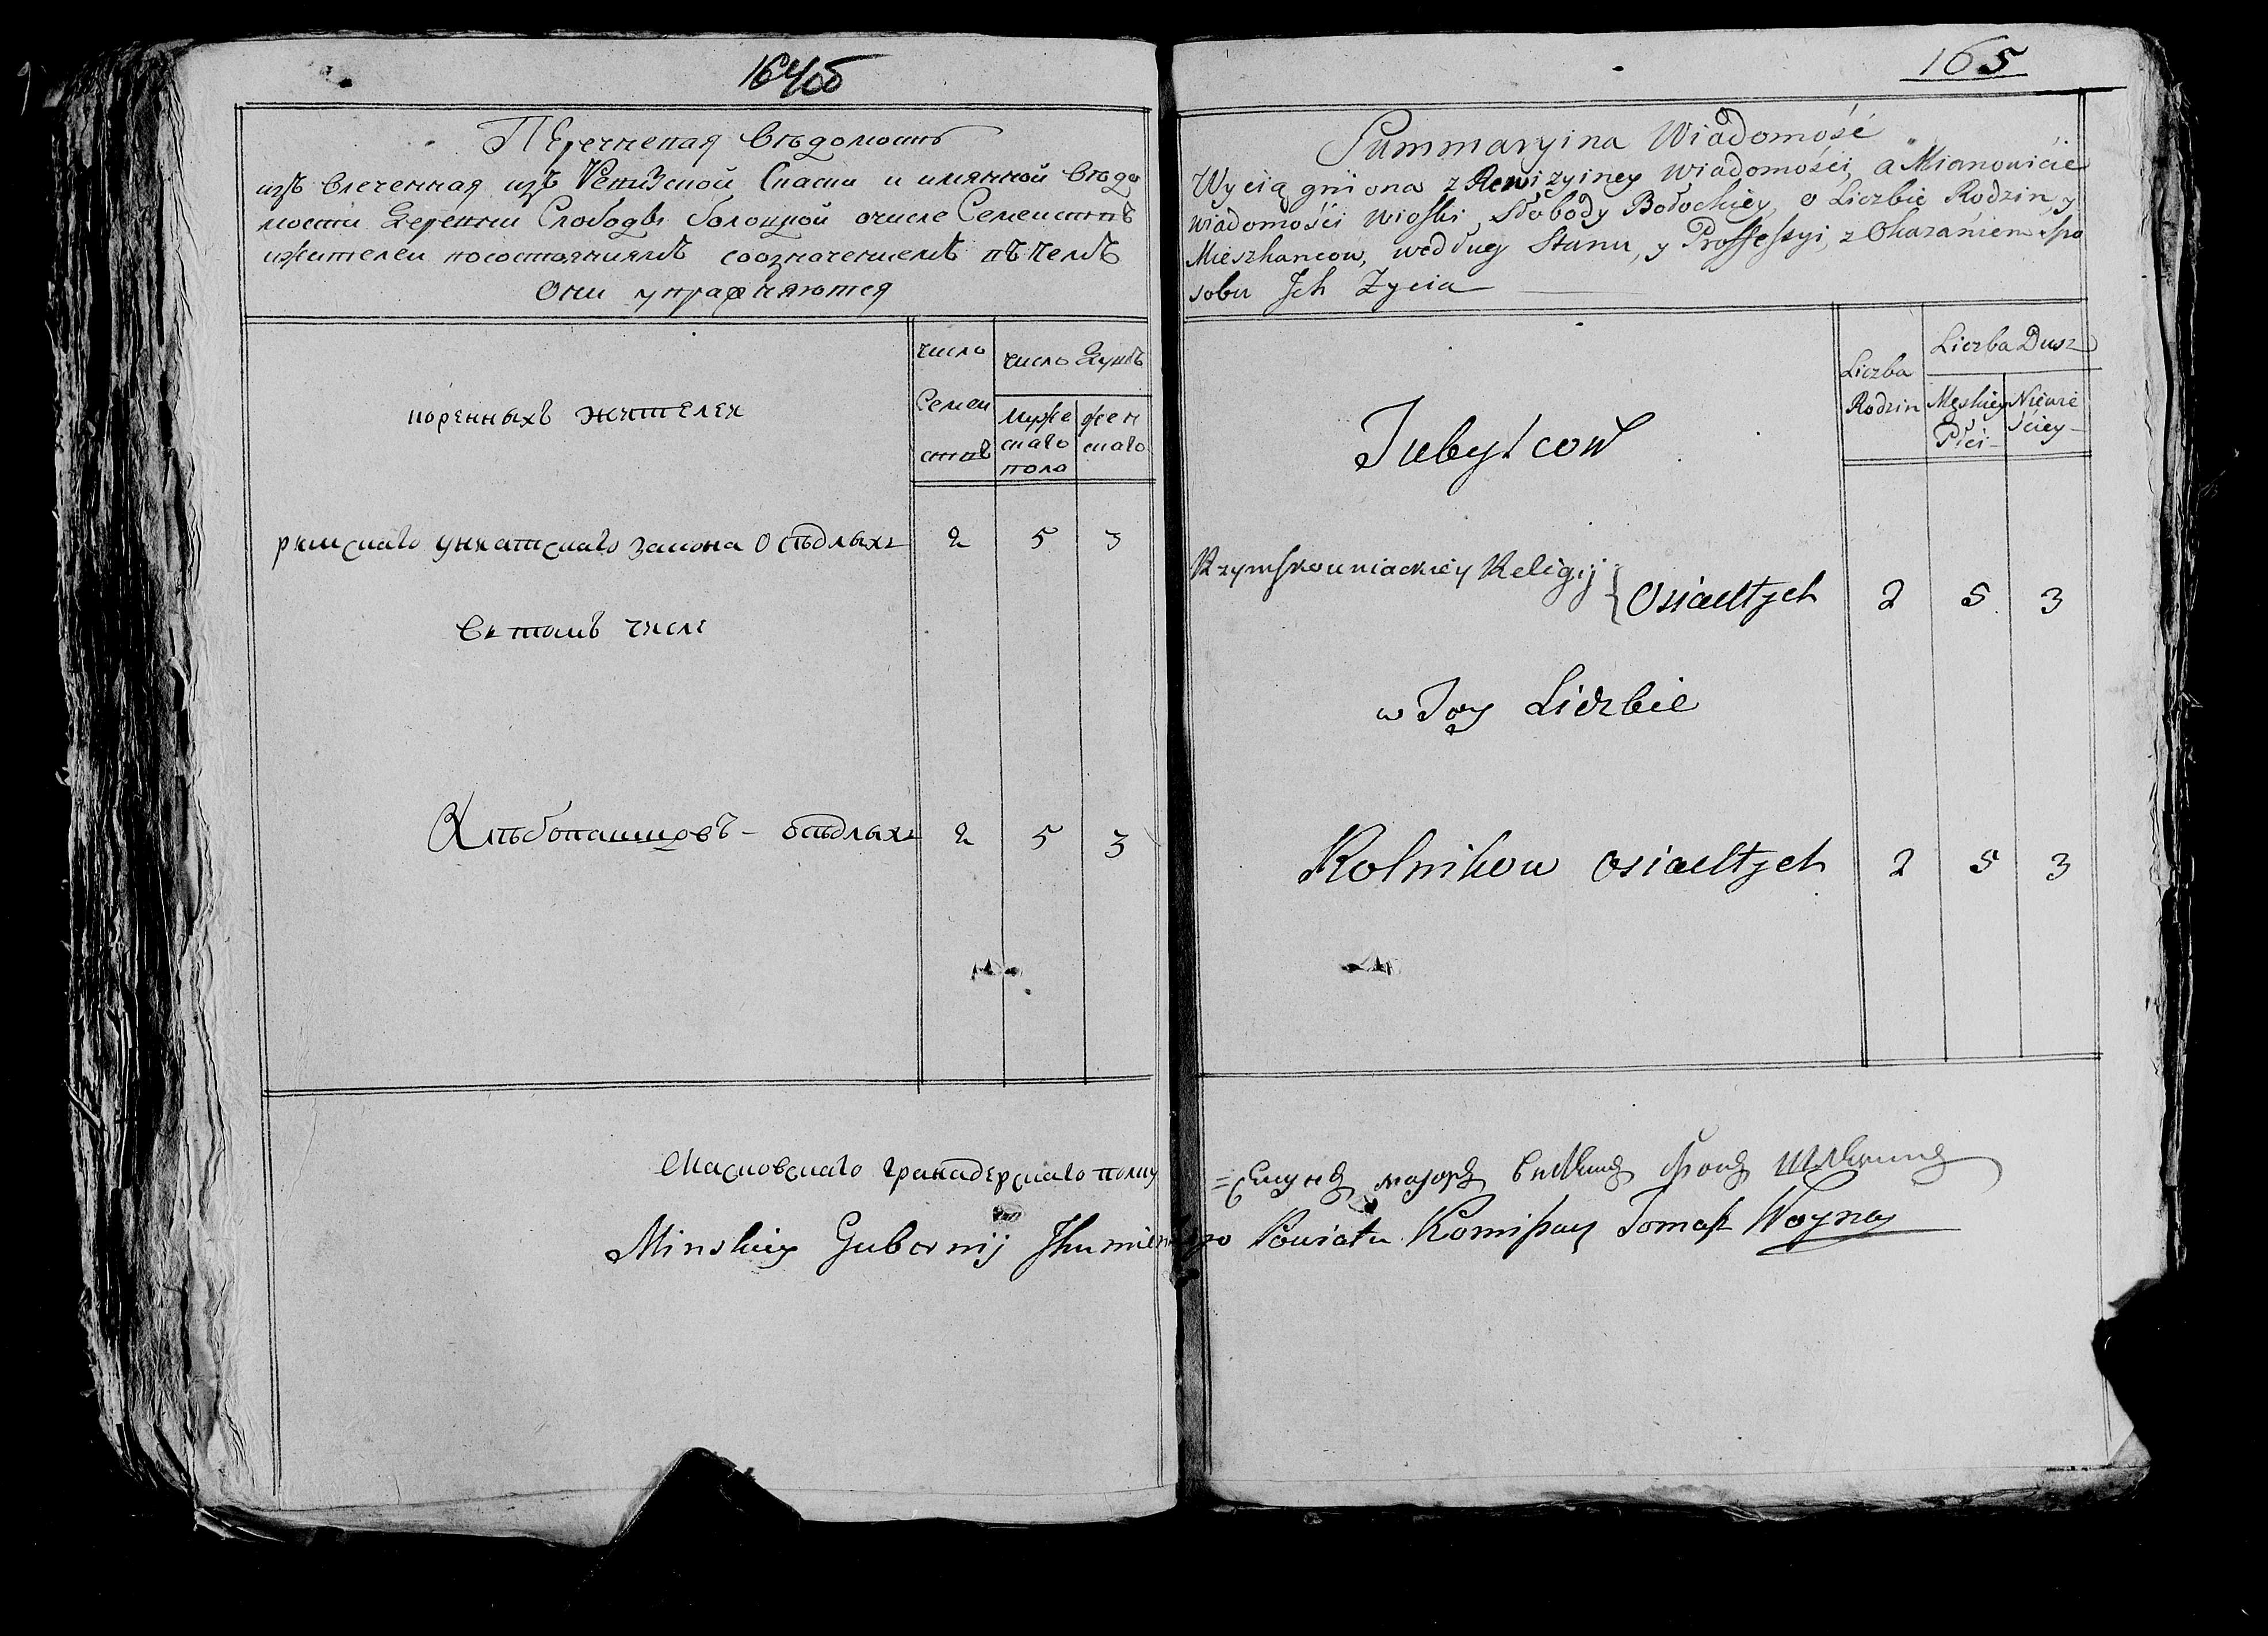 164об
Перечневая Вѣдомость
изъ влеченная изъ Ревизской Сказки и имянной вѣдо
мости Деревни Слободы болоцкой очисле Семействъ
ижителей посостояниямъ соозначениемъ въ чемъ
Они упражняются
коренныхъ жителей
число Семей ствъ
число Душъ
муже скаго пола
жен скаго
римскаго униатскаго закона Осѣдлыхъ 2 5 3
въ томъ числе
Хлѣбопашцовъ - осѣдлыхъ 2 5 3
Московскаго гранадерскаго полку
165
Summaryina Wiadomość
Wyciągniona z Rewizyiney Wiadomości, a Mianowicie
Wiadomości Wioski Słobody Bołockiey, o Liczbie Rodzin, y
Mieszkancow, według Stanu, y Proffessyi, z Okazaniem spo
sobu Jch Zycia
Tubylcow
Liczba Rodzin
Liczba Dusz
Męskiey Płci
Niewie ściey
Rzymskouniackiey Religij { Osiadłych 2 5 3
w Tey Liczbie
Rolnikow osiadłych 2 5 3
=Секундъ маіоръ фонъ
Minskiey Gubernij Jhumienskiego Powiatu Komissarz Tomasz Woyna